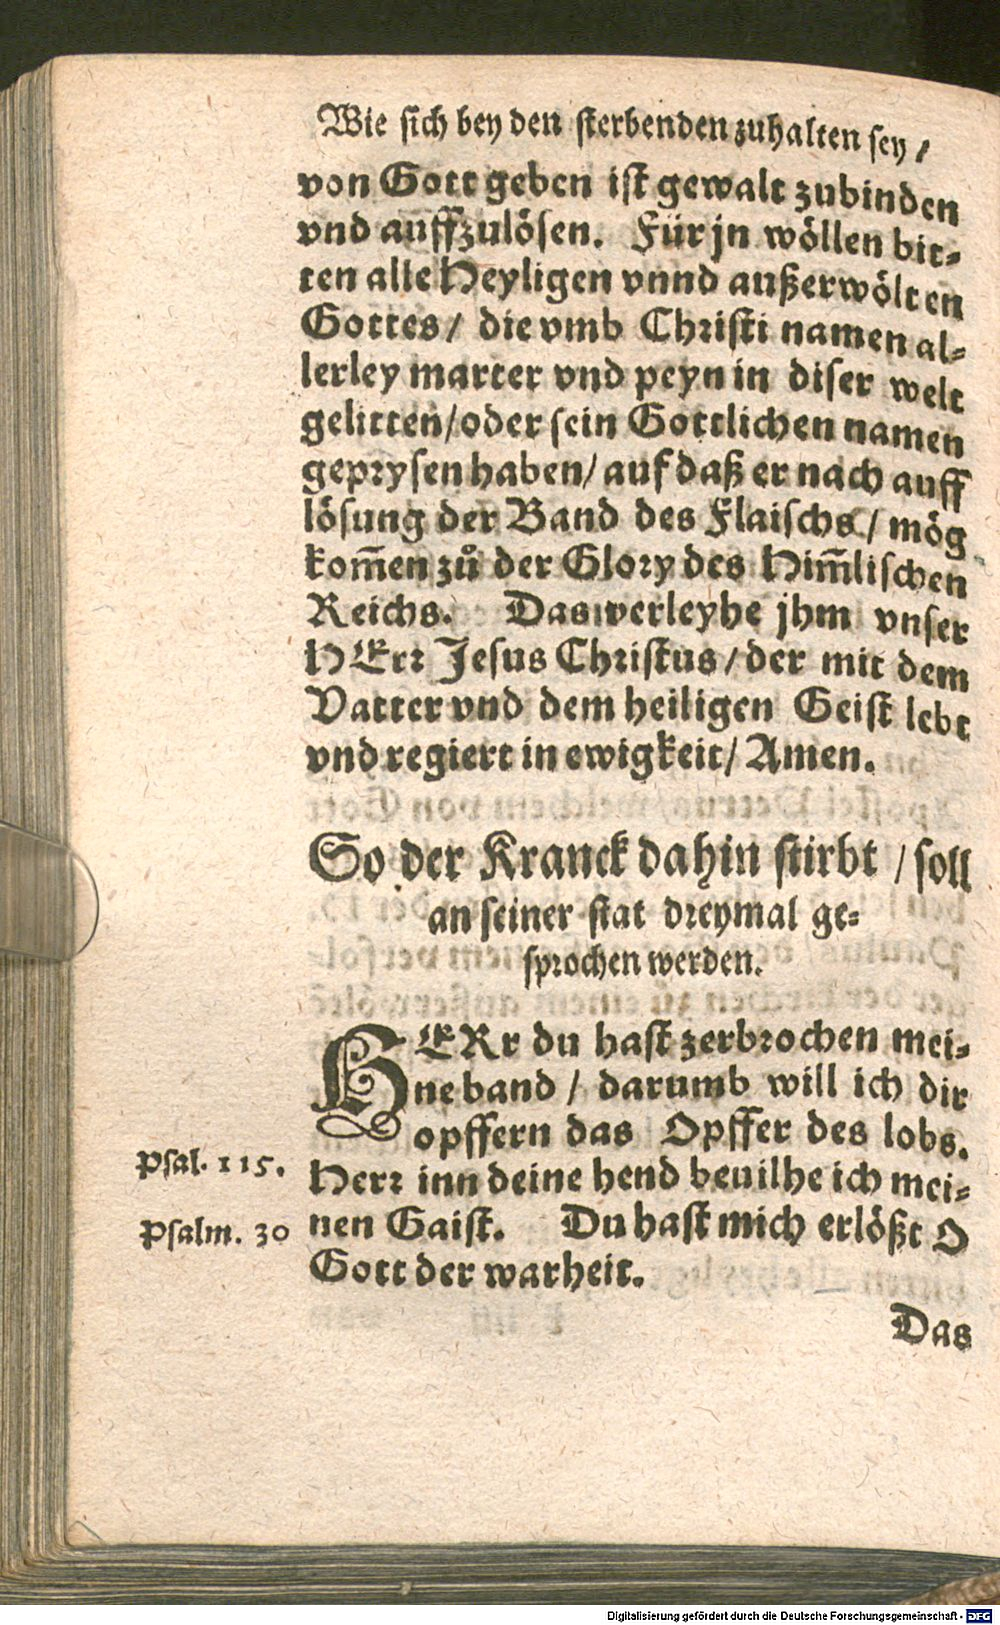 Wie sich bey den sterbenden zuhalten sey /
von Gott geben ist gewalt zubinden
vnd auffzulösen. Für jn wöllen bit-
ten alle Heyligen vnnd außerwölten
Gottes / die vmb Christi namen al-
lerley marter vnd peyn in diser welt
gelitten / oder sein Gottlichen namen
geprysen haben / auf daß er nach auff
lösung der Band des Flaischs / mög
kom̃en zů der Glory des Him̃lischen
Reichs. Das verleyhe jhm vnser
HErr Jesus Christus / der mit dem
Vatter vnd dem heiligen Geist lebt
vnd regiert in ewigkeit / Amen.
So der Kranck dahin stirbt / soll
an seiner stat dreymal ge-
sprochen werden.
HERr du hast zerbrochen mei-
ne band / darumb will ich dir
opffern das Opffer des lobs.
Psal. 115.
Herr inn deine hend beuilhe ich mei-
Psalm. 30
nen Gaist. Du hast mich erlößt O
Gott der warheit.
Das
Digitalisierung gefördert durch die Deutsche Forschungsgemeinschaft - DFG